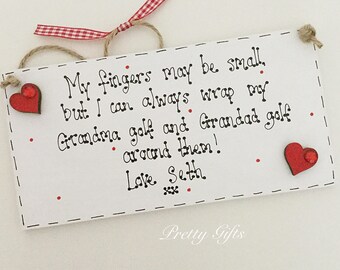 My fingers may be small,
but I can always wrap my
Grandma golf and Grandad golf
around them!
Love Seth
xxx
Pretty Gifts